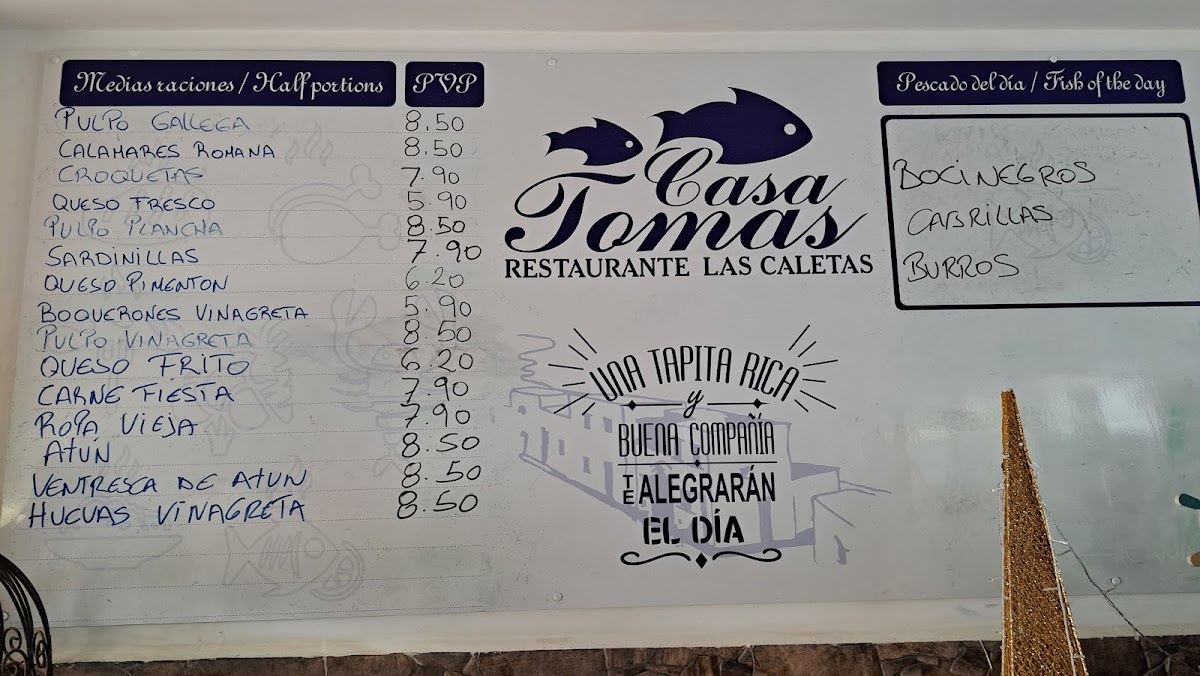 Medias raciones / Half portions PVP
PULPO GALLEGA 8.50
CALAMARES ROMANA 8.50
CROQUETAS 7.90
QUESO FRESCO 5.90
PULPO PLANCHA 8.50
SARDINILLAS 7.90
QUESO PIMENTON 6.20
BOQUERONES VINAGRETA 5.90
PULPO VINAGRETA 8.50
QUESO FRITO 6.20
CARNE FIESTA 7.90
ROPA VIEJA 7.90
ATÚN 8.50
VENTRESCA DE ATUN 8.50
HUEVAS VINAGRETA 8.50
Casa
Tomas
RESTAURANTE LAS CALETAS
UNA TAPITA RICA
y
BUENA COMPAÑÍA
TE ALEGRARÁN
EL DÍA
Pescado del día / Fish of the day
BOCINEGROS
CABRILLAS
BURROS